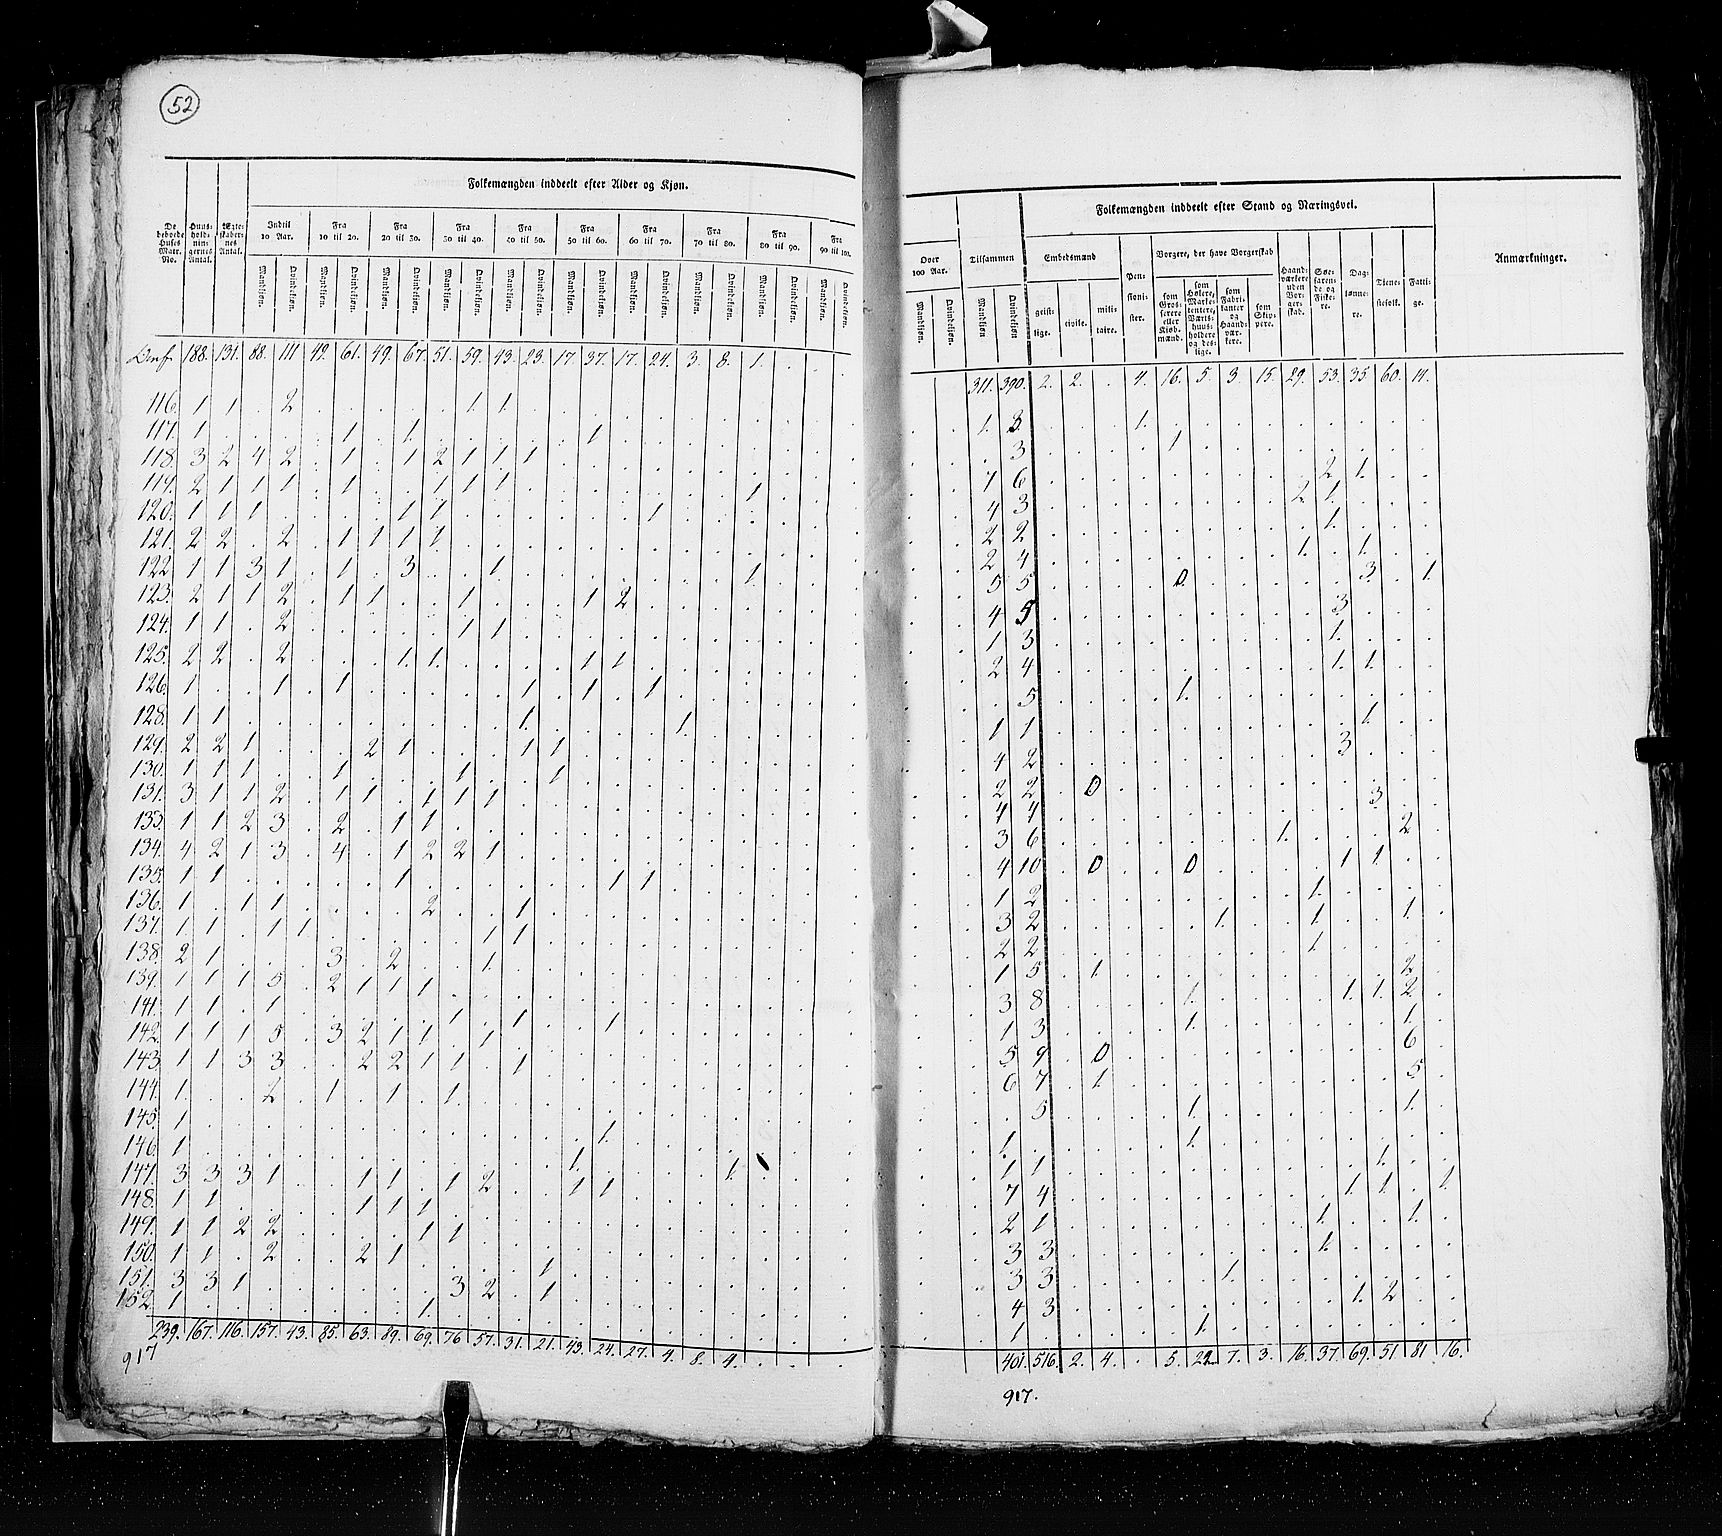 52
Folkemængden inddeelt efter Alder og Kjøn.
De beboede Huses Matr. No.
Huusholdningernes Antal.
Ægteskabernes Antal.
Indtil 10 Aar.
Fra 10 til 20.
Fra 20 til 30.
Fra 30 til 40.
Fra 40 til 50.
Fra 50 til 60.
Fra 60 til 70.
Fra 70 til 80.
Fra 80 til 90.
Fra 90 til 100.
Mandkjøn. Qvindekjøn. Mandkjøn. Qvindekjøn. Mandkjøn. Qvindekjøn. Mandkjøn. Qvindekjøn. Mandkjøn. Qvindekjøn. Mandkjøn. Qvindekjøn. Mandkjøn. Qvindekjøn. Mandkjøn. Qvindekjøn. Mandkjøn. Qvindekjøn. Mandkjøn. Qvindekjøn.
188. 131. 88. 111 49. 61. 49. 67. 51. 59. 43. 23. 17. 37. 17. 24. 3. 8. 1. . .
116. 1 1 . 2 . . . . . 1. 1.
117. 1 . . . . 1 . 1 . . . . . 1
118. 3 2 4 2 . 1 . 1 2 1 1 1
119. 2 1 1 1 . 1 . . 1 1 1 . . . . . . . 1
120. 1 1 1 . . . . 1 1 . . . . . . 1
121. 2 2 . 2 . 1 1 1 1
122. 1 1 3 1 . 1 . 3 . . 1 . . . . . . . 1
123. 2 1 1 2 . 1 1 . . 1 . . . 1 2
124. 1 1 . 2 . . . . . 1 1
125. 2 2 . 2 . . . 1 1 . . . . 1 1
126. 1 . . 1 . 1 . . . . . 1 . 1 . 1
128. 1 1 . . . . . . . . . 1 . . . . 1
129. 2 2 1 . . . 2 1 . . . 1 1
130. 1 1 1 . . 1 . . . 1 . . 1
131. 3 1 1 2 . 1 1 . 1 1 1
133. 1 1 2 3 . 2 . 1 1
134. 4 2 1 3 . 4 . 1 2 2 1
135. 1 1 . . . . . 1 . . . . . . 1 1
136. 1 . 1 1 . . . . 2 . . 1
137. 1 1 . 1 1 . . . . . 1 1
138. 2 1 . . . 3 . 2 . . 1
139. 1 1 1 5 . 2 1 1 1
141. 1 1 . 1 . . . . . 1 . 1 . . 1
142. 1 1 1 5 . 3 2 1 1 . 1
143. 1 1 3 3 . . 2 2 1 1 . 1
144. 1 . . 2 . 1 . 1 . 1
145. 1 . . . . . . . . . . . . . 1
146. 1 . . . . . . . . . . . . 1 . . . . 1
147. 3 3 3 1 . . 1 1 . 1 2 . . 1 1
148. 1 1 . . . . 1 1 1
149. 1 1 2 2 . . . . 1 1
150. 1 1 . 2 . . 2 1 . . . . 1
151. 3 3 1 . . . . . . 3 2 . 1
152. 1 . . . . . . . 1
239. 167. 116. 157. 43. 85. 63. 89. 69. 76 57. 31. 21. 43. 24. 27. 4. 8. 4. . . .
917
Over 100 Aar.
Tilsammen
Folkemængden inddeelt efter Stand og Næringsvei.
Anmærkninger.
Mandkjøn. Qvindekjøn. Mandkjøn Qvindekjøn
Embedsmænd
geistlige. civile. militaire.
Pensionister.
Borgere, der have Borgerskab
som Grosserere eller Kiøbmænd.
som Høkere, Marketentere, Værtshuusholdere og deslige.
som Fabrikanter og Haandværkere.
som Skippere.
Haandværkere uden Borgerskab.
Søefarende og Fiskere.
Daglønnere.
Tienestefolk.
Fattige.
311. 390. 2. 2. . 4. 16. 5. 3. 15. 29. 53. 35. 60. 14.
1. 3. . . . 1.
. 3 . . . . 1
7 6 . . . . . . . . . 2 1.
4 3 . . . . . . . . 2 1.
2 2 . . . . . . . . . 1.
2 4 . . . . . . . . 1. . 1.
5 5 . . . . 0 . . . . . 3 . 1.
4 5 . . . . . . . . . 3
1 3 . . . . . . . . . 1.
2 4 . . . . . . . . . 1. 1.
. 5 . . . . 1.
1 1 . . . . . . . . . . 1.
4 2 . . . . . . . . . 3
2 2 . 0 . . . . . . . . 3
4 4 . . . . . . . . . . . 2
3 6 . . . . . . . 1.
4 10 . 0 . . 0 . . . . 1 1
1 2 . . . . . . . . 1.
3 2 . . . . . 1. . . 1. . . 1.
2 2 . . . . . . . . 1
1 5 . 1. . . . . . . . . . 2
3 8 . . . . 1. . . . . 1. 1. 2
1 3 . . . . 1. . . . . . . 1
5 9 . 0 . . . . . . . . . 6
6 7 . 1. . . . . . . . . . 5
. 5 . . . . 1. . . . . . . 1.
1. . . . . . 1.
1 1 . . . . . . . . . . 1.
7 4 . . . . . . . . . 1. 1. . 1.
2 1 . . . . . . . . 1. . . 1.
3 3 . . . . . . . . 1.
3 3 . . . . . 1.
4 3 . . . . . . . . . 1. 2
1 . . . . . 1.
401. 516. 2. 4. . 5. 22. 7. 3. 16. 37. 69. 51 81 16.
917.